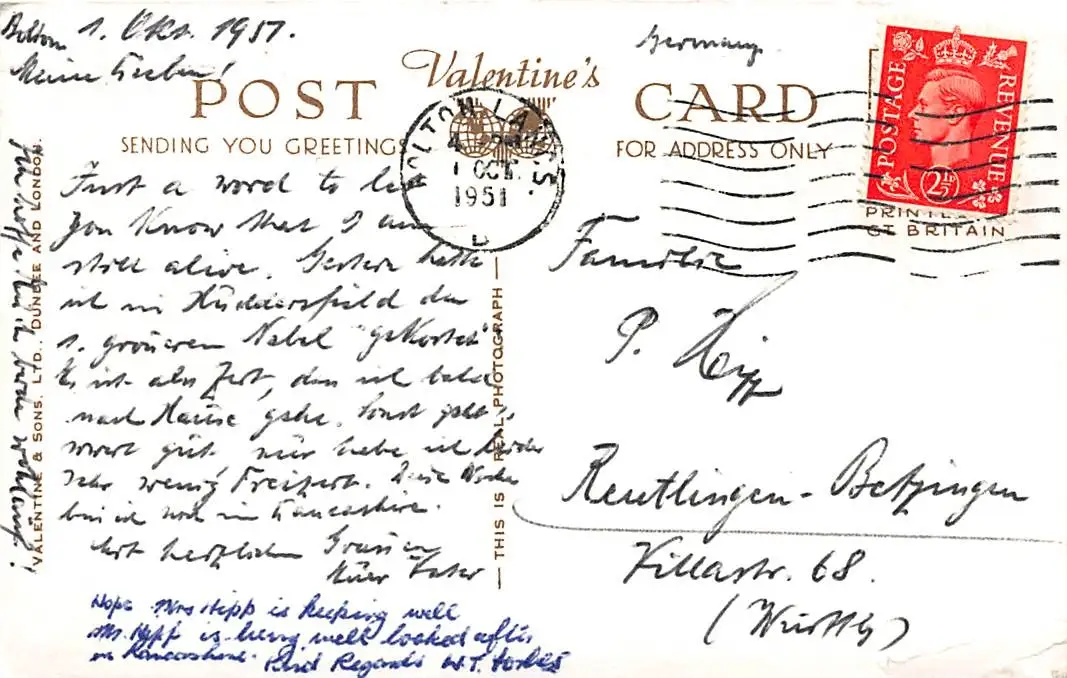 Bolton 1. Okt. 1951.
Meine Lieben!
Germany
Valentine's
POST CARD
SENDING YOU GREETINGS
FOR ADDRESS ONLY
BOLTON LANCS.
1 OCT
1951
D
POSTAGE REVENUE
2½D
PRINTED
GT BRITAIN
Just a word to let
you know that I am
still alive. Gestern hatte
ich in Huddersfield den
1. grösseren Nebel "gekostet"
Es ist also Zeit, dass ich bald
nach Hause gehe. Sonst geht's
soweit gut nur habe ich leider
sehr wenig Freizeit. Diese Woche
bin ich noch in Lancashire.
Mit herzlichen Grüssen
Euer Vater
Hope Mrs Hipp is keeping well
Mr. Hipp is being well looked after
in Lancashire. Kind Regards W.T.
Ich hoffe Euch beide wohlauf!
VALENTINE & SONS. LTD., DUNDEE AND LONDON.
THIS IS A REAL PHOTOGRAPH
Familie
P. Hipp
Reutlingen-Betzingen
Villastr. 68.
(Württbg)